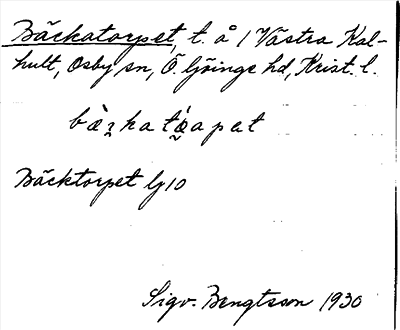 Bäckatorpet, t. å 1 Västra Kal-
hult, Osby sn, Ö. Göinge hd, Krist. l.
Bäcktorpet lj 10
Sigv. Bengtsson 1930